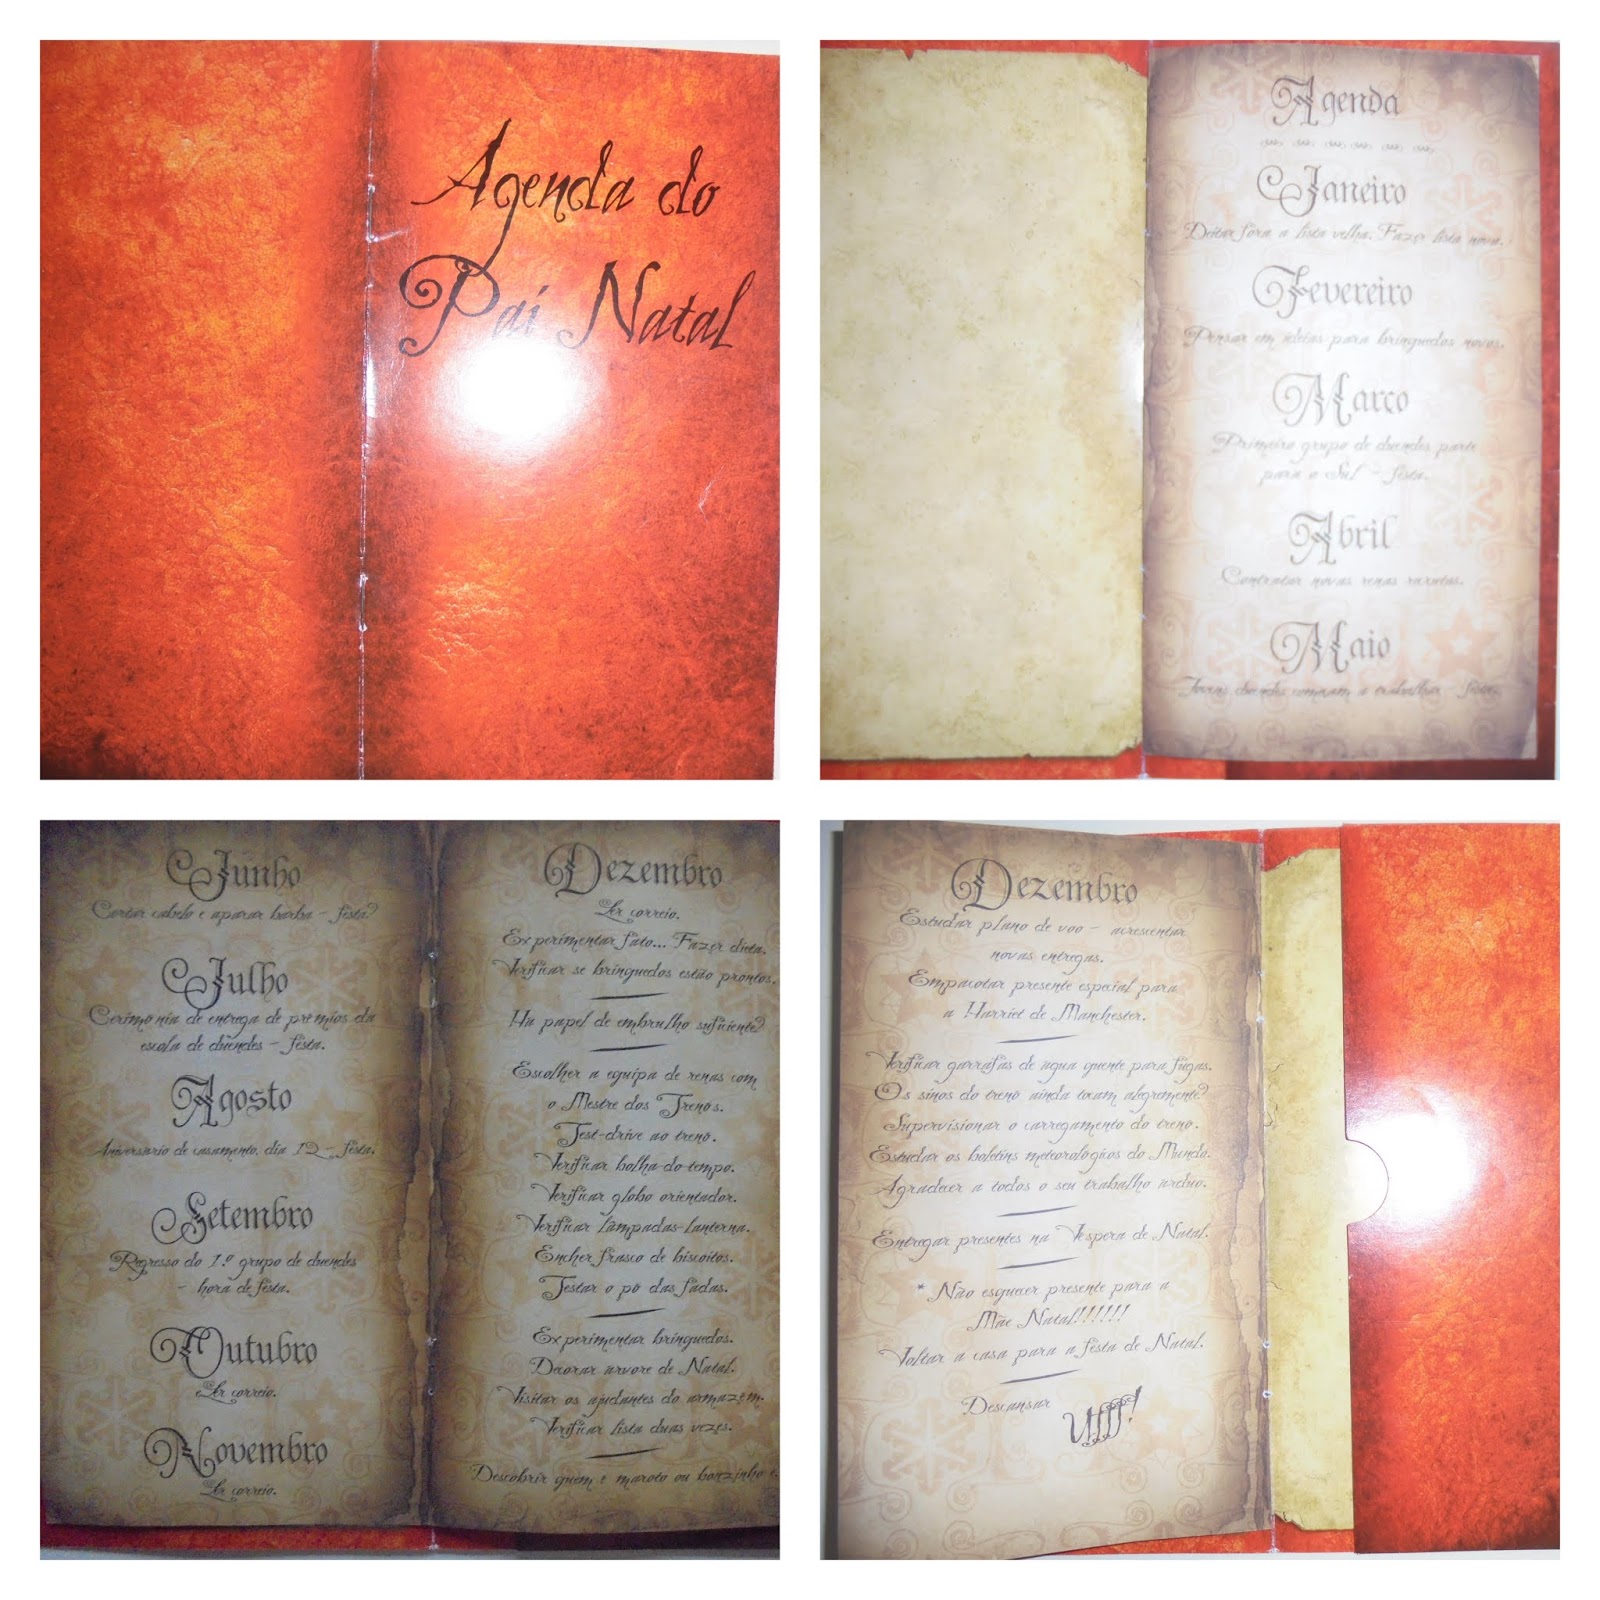 Agenda do
Pai Natal
Agenda
Janeiro
Deitar fora a lista velha. Fazer lista nova.
Fevereiro
Pensar em ideias para brinquedos novos.
Março
Primeiro grupo de duendes parte
para o Sul – festa.
Abril
Contratar novas renas recrutas.
Maio
Jovens duendes começam a trabalhar – festa.
Junho
Cortar cabelo e aparar barba – festa?
Julho
Cerimónia de entrega de prémios da
escola de duendes – festa.
Agosto
Aniversário de casamento, dia 12 – festa.
Setembro
Regresso do 1.º grupo de duendes
– hora de festa.
Outubro
Ler correio.
Novembro
Ler correio.
Dezembro
Ler correio.
Experimentar fato... Fazer dieta.
Verificar se brinquedos estão prontos.
Há papel de embrulho suficiente?
Escolher a equipa de renas com
o Mestre dos Trenós.
Test-drive ao trenó.
Verificar bolha-do-tempo.
Verificar globo orientador.
Verificar lâmpadas-lanterna.
Encher frasco de biscoitos.
Testar o pó das fadas.
Experimentar brinquedos.
Decorar árvore de Natal.
Visitar os ajudantes do armazém.
Verificar lista duas vezes.
Descobrir quem é maroto ou bonzinho e
Dezembro
Estudar plano de voo – acrescentar
novas entregas.
Empacotar presente especial para
a Harriet de Manchester.
Verificar garrafas de água quente para fugas.
Os sinos do trenó ainda tocam alegremente?
Supervisionar o carregamento do trenó.
Estudar os boletins meteorológicos do Mundo.
Agradecer a todos o seu trabalho árduo.
Entregar presentes na Véspera de Natal.
* Não esquecer presente para a
Mãe Natal!!!!!!
Voltar a casa para a festa de Natal.
Descansar
Ufff!